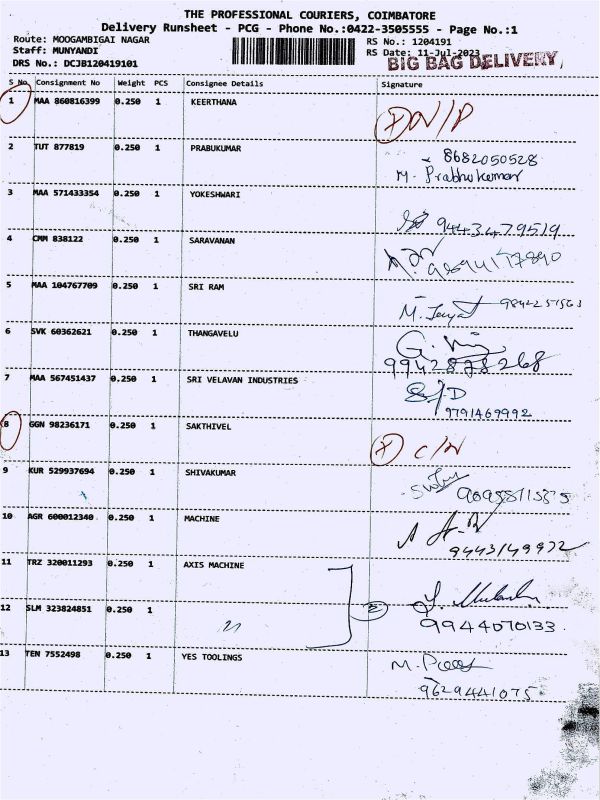 THE PROFESSIONAL COURIERS, COIMBATORE
Delivery Runsheet - PCG - Phone No.:0422-3505555 - Page No.:1
Route: MOOGAMBIGAI NAGAR RS No.: 1204191
Staff: MUNYANDI RS Date: 11-Jul-2023
DRS No.: DCJB120419101 BIG BAG DELIVERY
S No. Consignment No Weight PCS Consignee Details Signature
1 MAA 860816399 0.250 1 KEERTHANA
2 TUT 877819 0.250 1 PRABUKUMAR 8682050528
M. Prabhukumar
3 MAA 571433354 0.250 1 YOKESHWARI
9443479519
4 CMM 838122 0.250 1 SARAVANAN
5 MAA 104767709 0.250 1 SRI RAM
6 SVK 60362621 0.250 1 THANGAVELU
9942878268
7 MAA 567451437 0.250 1 SRI VELAVAN INDUSTRIES
9791469992
8 GGN 98236171 0.250 1 SAKTHIVEL
9 KUR 529937694 0.250 1 SHIVAKUMAR
10 AGR 600012340 0.250 1 MACHINE
9443149972
11 TRZ 320011293 0.250 1 AXIS MACHINE
12 SLM 323824851 0.250 1
9944070133
13 TEN 7552498 0.250 1 YES TOOLINGS
9629441075